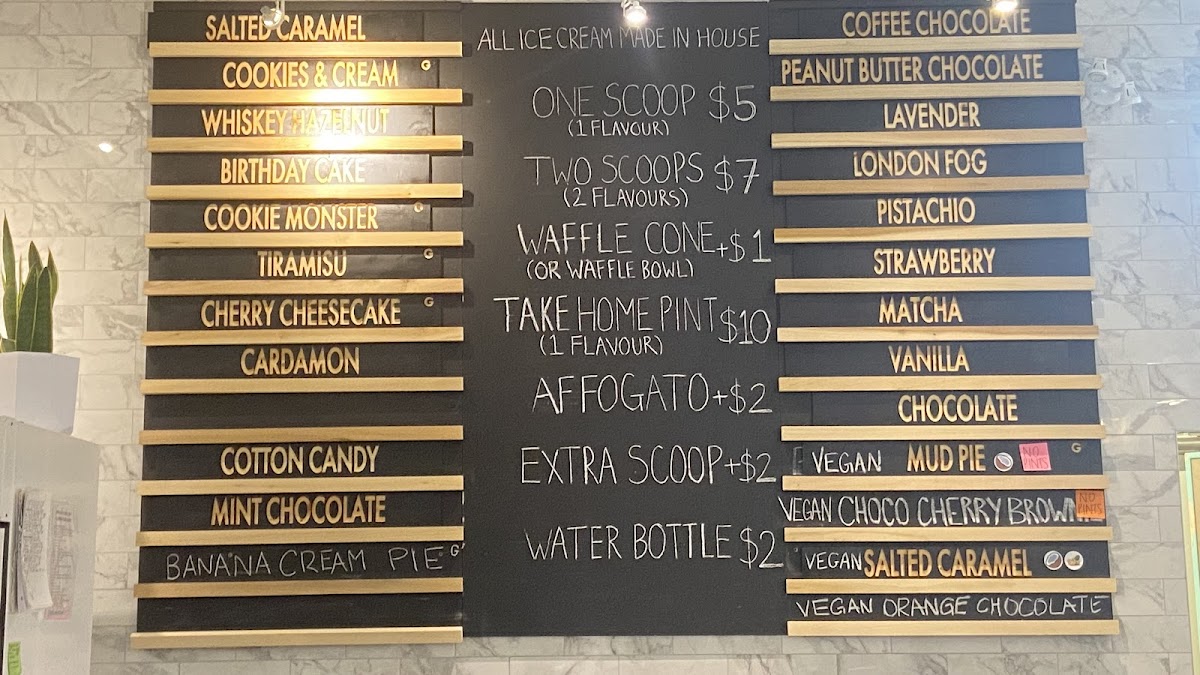 SALTED CARAMEL
COOKIES & CREAM G
WHISKEY HAZELNUT
BIRTHDAY CAKE
COOKIE MONSTER G
TIRAMISU G
CHERRY CHEESECAKE G
CARDAMON
COTTON CANDY
MINT CHOCOLATE
BANANA CREAM PIE G
ALL ICE CREAM MADE IN HOUSE
ONE SCOOP $5
(1 FLAVOUR)
TWO SCOOPS $7
(2 FLAVOURS)
WAFFLE CONE +$1
(OR WAFFLE BOWL)
TAKE HOME PINT $10
(1 FLAVOUR)
AFFOGATO +$2
EXTRA SCOOP +$2
WATER BOTTLE $2
COFFEE CHOCOLATE
PEANUT BUTTER CHOCOLATE
LAVENDER
LONDON FOG
PISTACHIO
STRAWBERRY
MATCHA
VANILLA
CHOCOLATE
VEGAN MUD PIE NO PINTS G
VEGAN CHOCO CHERRY NO PINTS
VEGAN SALTED CARAMEL
VEGAN ORANGE CHOCOLATE